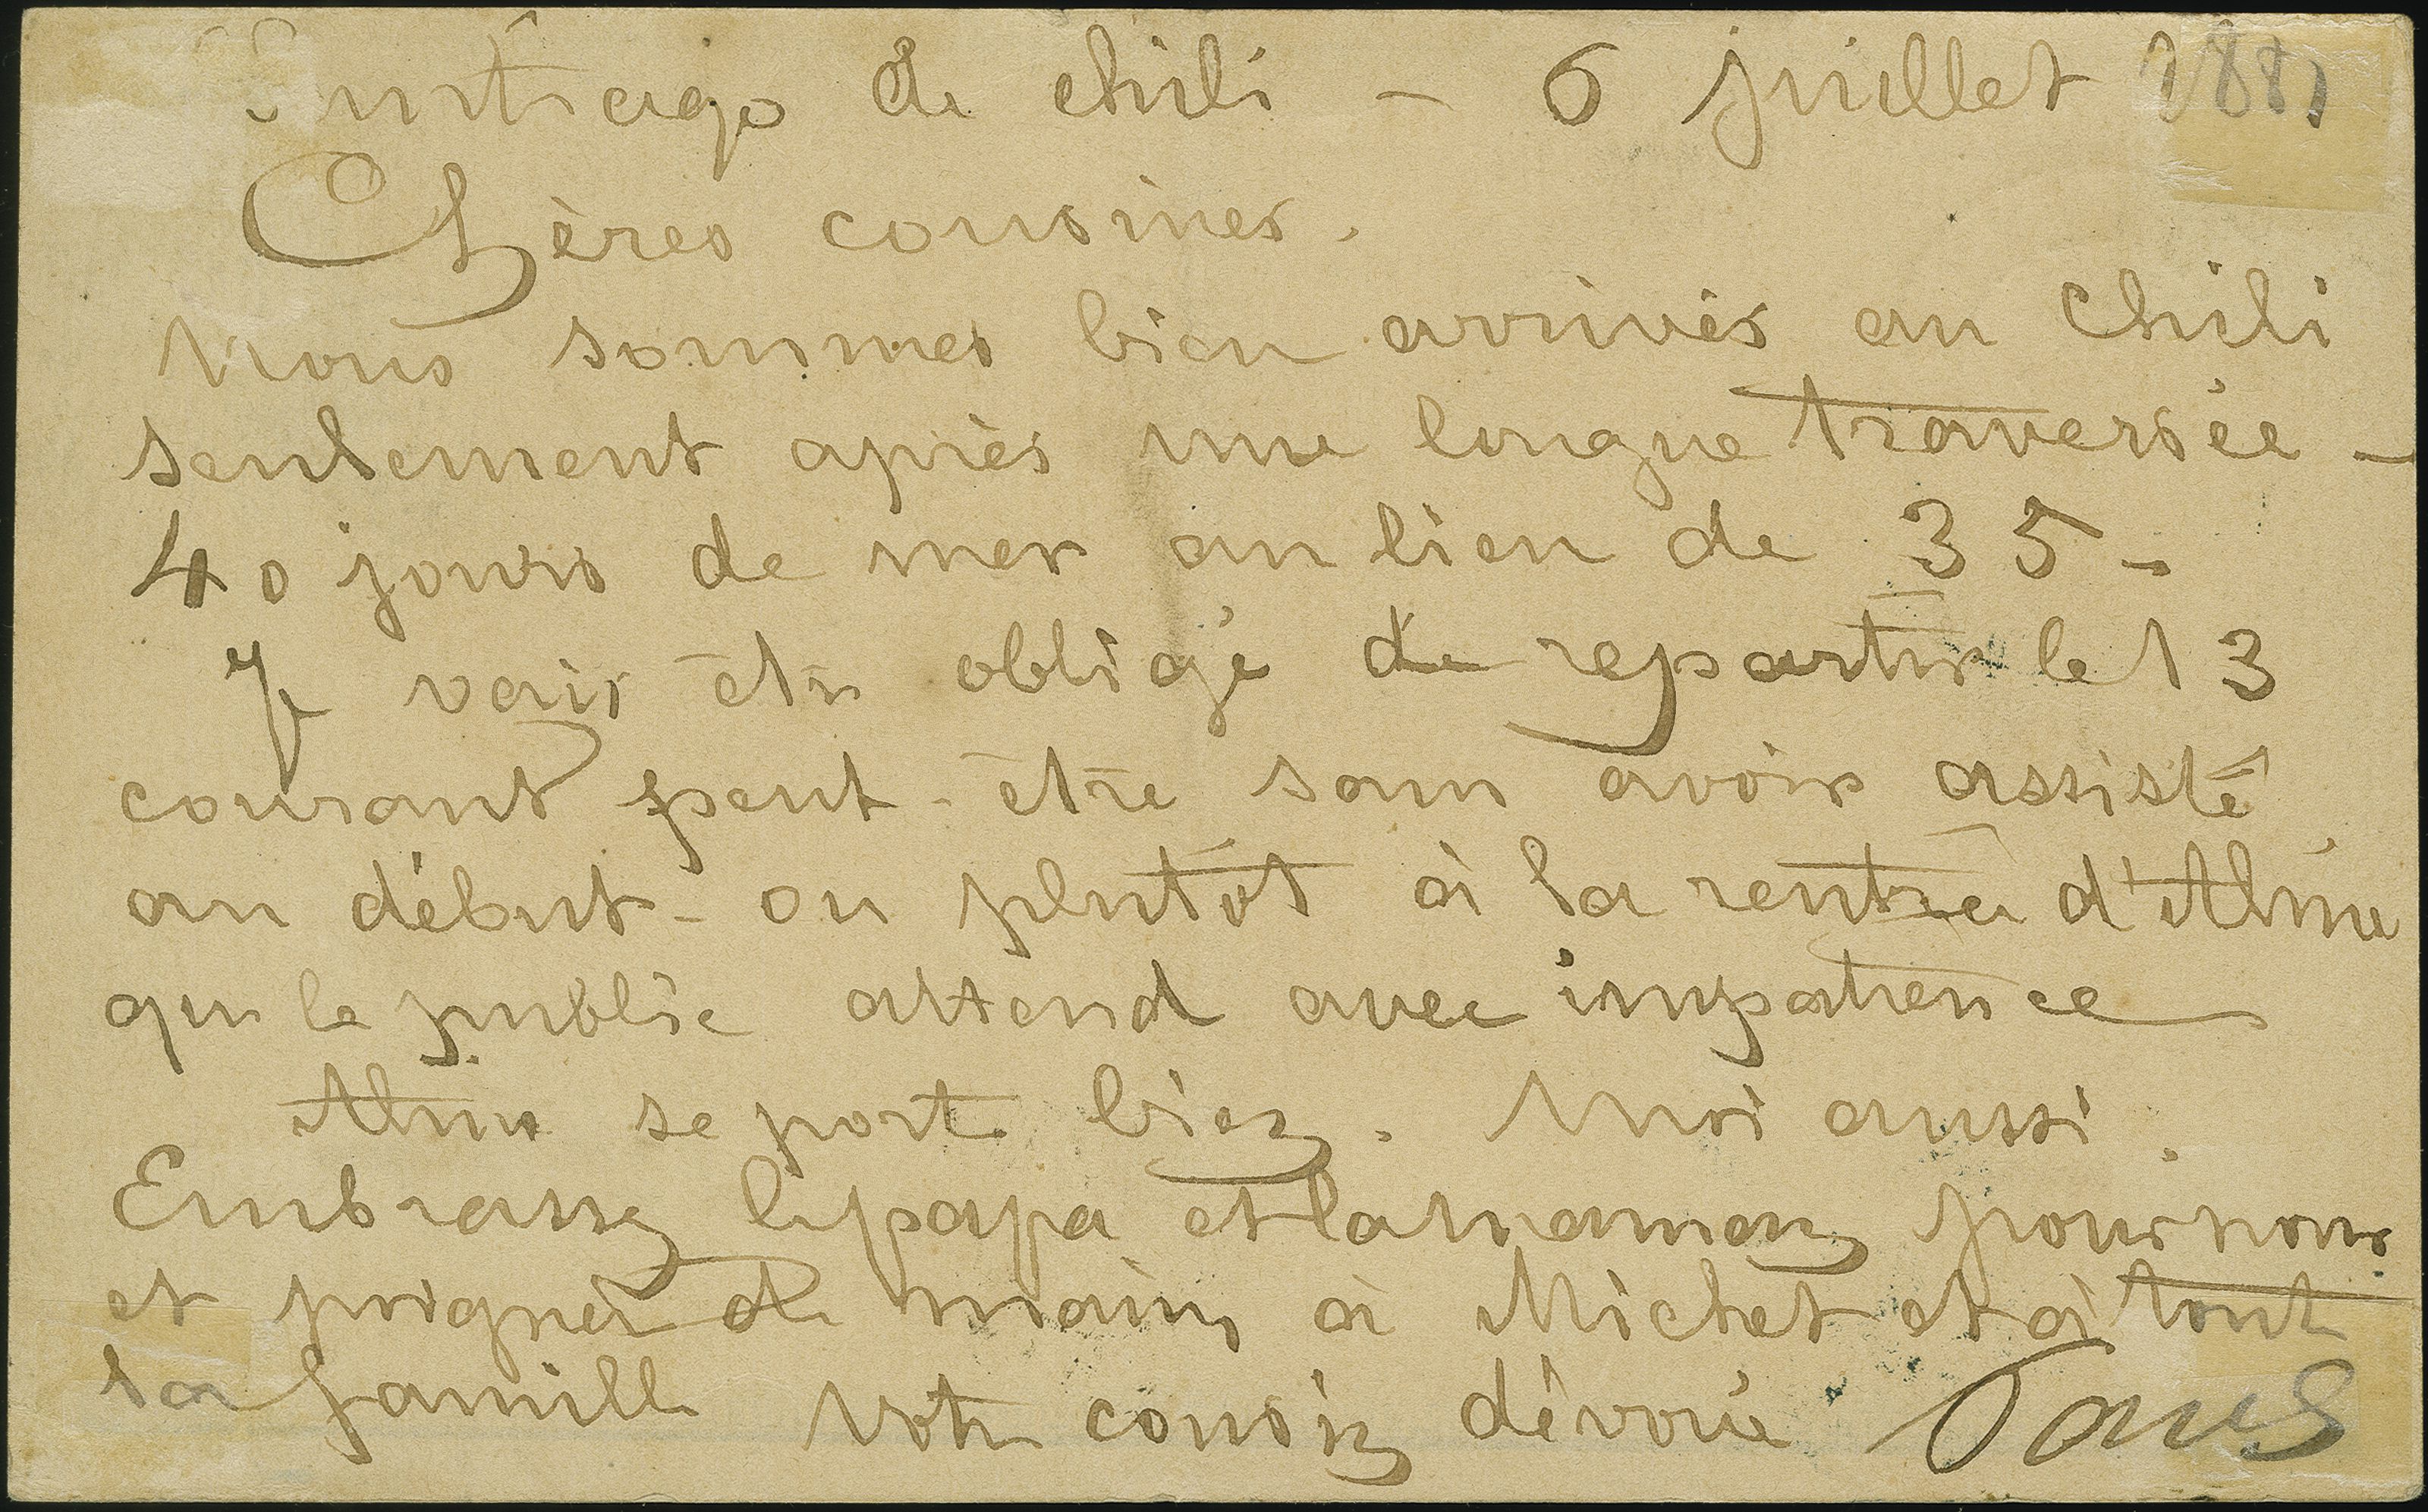 Santiago de chili - 6 juillet 1881
Chères cousines.
Nous sommes bien arrivés au Chili
seulement après une longue traversée -
40 jours de mer au lieu de 35 -
Je vais être obligé de repartir le 13
courant peut-être sans avoir assisté
au début - ou plutôt à la rentrée d'Aline
que le public attend avec impatience
Aline se porte bien. Moi aussi.
Embrassez le papa et la maman pour nous
et poignée de mains à Michel et à toute
la famille Votre cousin dévoué